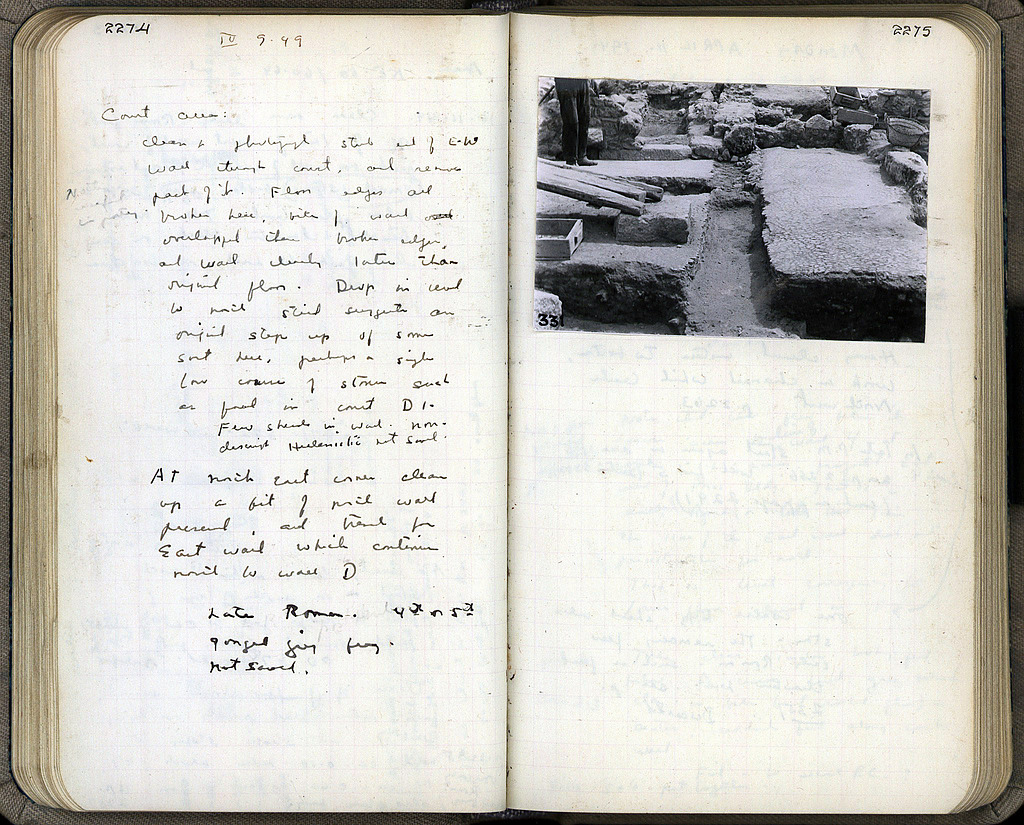 2274
IV 9.49
Court area:
clean & photograph stub end of E-W
wall through court, and remove
part of it. Floor edges all
broken here, bits of wall
overlapped their broken edges,
and wall clearly later than
original floor. Drop in level
to north still suggests an
original step up of some
sort here, perhaps a single
low course of stones such
as found in court D 1.
Few sherds in wall. non-
descript Hellenistic not saved.
AT north East corner clean
up a bit of north wall
preserved, and trench for
East wall which continues
north to wall D
Late Roman. 4th or 5th
gouged frag.
not saved.
2275
331